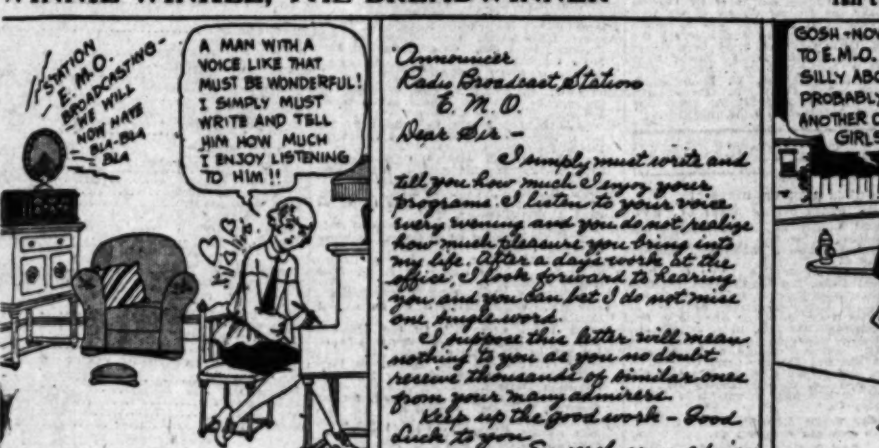 WINNIE WINKLE, THE BREADWINNER
STATION
E.M.O.
BROADCASTING-
-WE WILL
NOW HAVE
BLA-BLA
BLA
A MAN WITH A
VOICE LIKE THAT
MUST BE WONDERFUL!
I SIMPLY MUST
WRITE AND TELL
HIM HOW MUCH
I ENJOY LISTENING
TO HIM!!
Announcer
Radio Broadcast Station
E. M. O.
Dear Sir -
I simply must write and
tell you how much I enjoy your
programs. I listen to your voice
every evening and you do not realize
how much pleasure you bring into
my life. After a days work at the
office, I look forward to hearing
you and you can bet I do not miss
one single word.
I suppose this letter will mean
nothing to you as you no doubt
receive thousands of similar ones
from your many admirers.
Keep up the good work - Good
Luck to you
GOSH - NOW
TO E.M.O.
SILLY ABO
PROBABLY
ANOTHER O
GIRLS